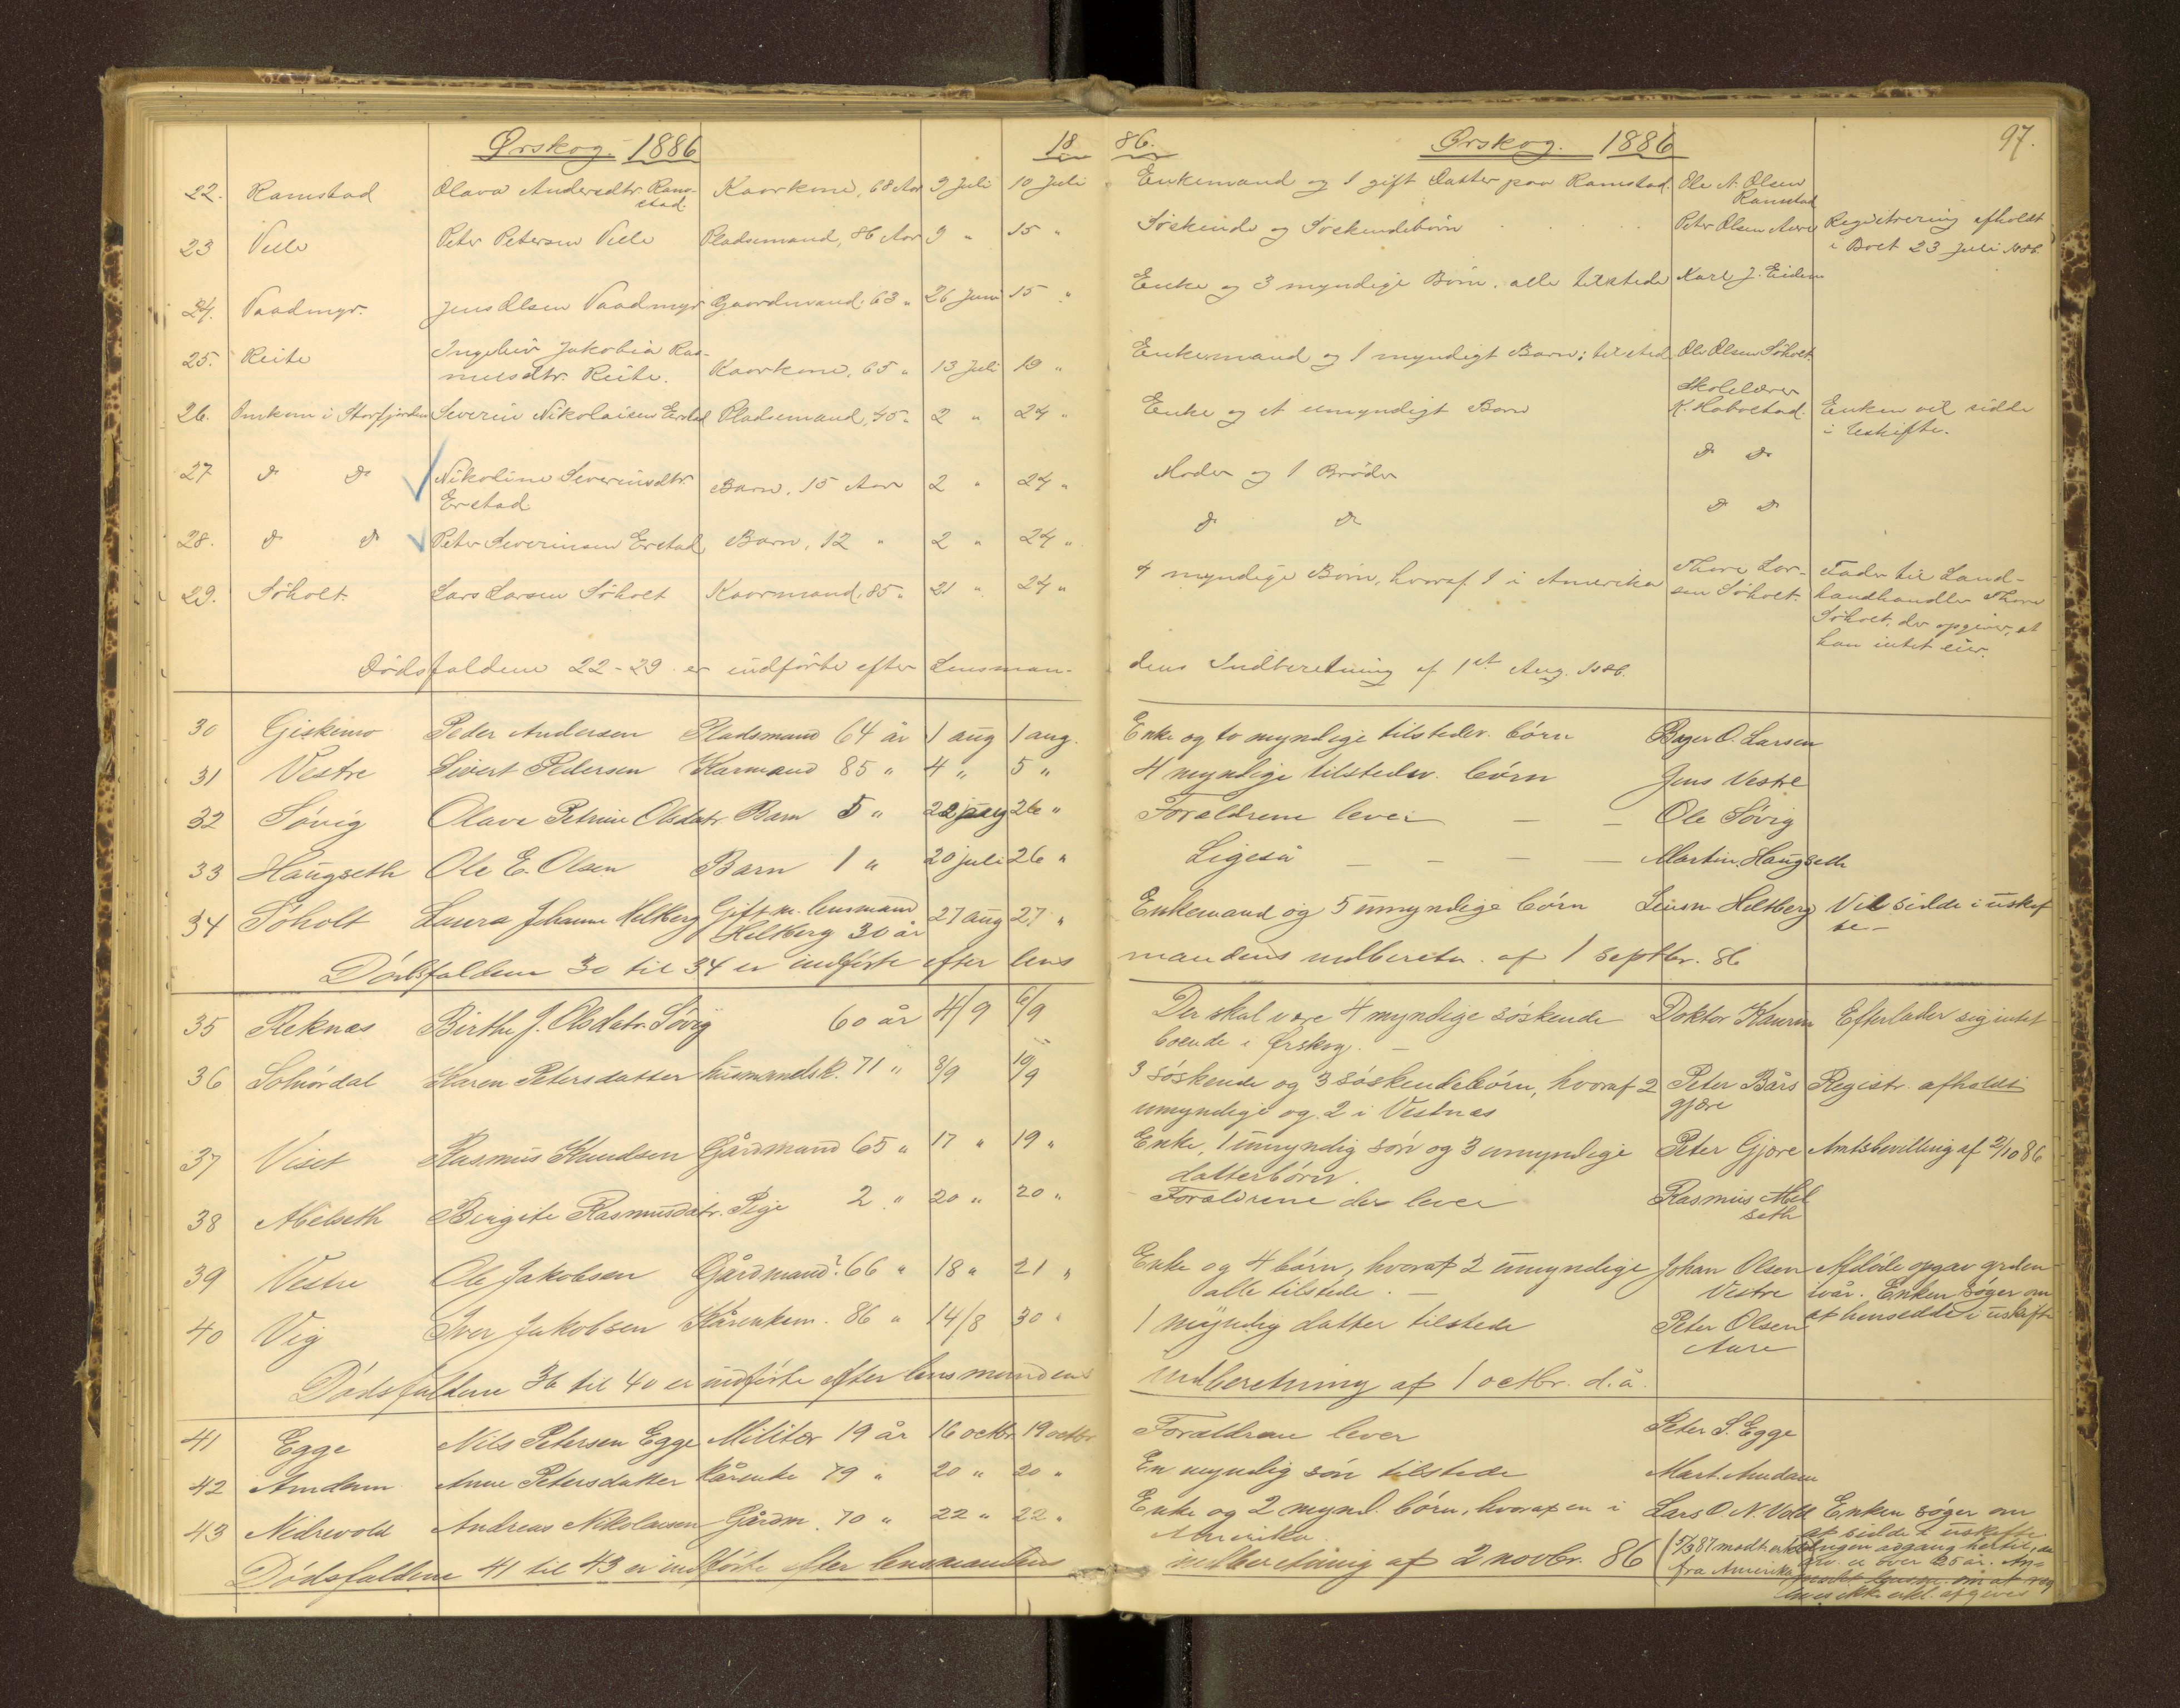 Ørskog. 1886 18
86. Ørskog. 1886 97.
22. Ramstad Olava Andersdtr. Ram- Kaarkone, 68 Aar 9 Juli 10 Juli Enkemand og 1 gift Datter paa Ramstad. Ole A. Olsen
stad Ramstad
23 Velle Peter Petersen Velle Pladsemand, 86 Aar 9 " 15 " Söskende og Söskendebörn Peter Olsen Aure Registrering afholdt
i Boet 23 Juli 1886.
24. Vaadmyr. Jens Olsen Vaadmyr Gaardmand, 63 " 26 Juni 15 " Enke og 3 myndige Börn, alle tilstede Karl J. Eidem
25. Reite Ingebör Jakobia Ras-
musdtr. Reite. Kaarkone, 65 " 13 Juli 19 " Enkemand og 1 myndigt Barn; tilsted Ole Olsen Söholt.
26. Omkom i Storfjorden Severin Nikolaisen Erstad Pladsemand, 45 " 2 " 24 " Enke og et umyndigt Barn Skolelærer
K. Habostad Enken vil sidde
i Uskifte.
27 do do Nikoline Severinsdtr.
Erstad Barn, 15 Aar 2 " 24 " Moder og 1 Broder do do
28. do do Peter Severinsen Erstad Barn, 12 " 2 " 24 " do do do do
29. Söholt. Lars Larsen Söholt Kaarmand, 85 " 21 " 24 " 4 myndige Börn, hvoraf 1 i Amerika Thore Lar- Fader til Land-
sen Söholt. handhandler Thore
Söholt, der opgiver, at
han intet eier.
Dödsfaldene 22-29 er indförte efter Lensman-
dens Indberetning af 1st Aug. 1886.
30 Giskemo Peder Andersen Pladsmand 64 år 1 aug 1 aug. Enke og to myndige tilstedev. börn Bager O. Larsen
31 Vestre Sivert Pedersen Karmand 85 " 4 " 5 " 4 myndige tilstedev. börn Jens Vestre
32 Sövig Olave Petrine Olsdatr. Barn 5 " 22 26 " Foraldrene lever — — Ole Sövig
33 Haugseth Ole E. Olsen Barn 1 " 20 juli 26 " Ligeså — — — — Martin Haugseth
34 Söholt Laura Johanne Heltberg Gift m. lensmand
Heltberg 30 år 27 aug 27 " Enkemand og 5 umyndige börn Lensm Heltberg Vil sidde i uskif
te —
Dödsfaldene 30 til 34 er indförte efter lens
mandens indberetn. af 1 septbr. 86
35 Reknæs Birthe J. Olsdatr. Sövig 60 år 4/9 6/9 Der skal være 4 myndige söskende Doktor Kaurin Efterlader sig intet
boende i Ørskog. —
36 Solnördal Karen Petersdatter husmandsk. 71 " 3/9 10/9 3 söskende og 3 söskendebörn, hvoraf 2 Peter Bårs Registr. afholdt
umyndige og 2 i Vestnæs gjære
37 Viset Rasmus Knudsen Gårdmand 65 " 17 " 19 " Enke, 1 umyndig sön og 3 umyndige Peter Gjære Amtsbevilling af 2/10 86
datterbörn.
38 Abelseth Birgite Rasmusdatr. Pige 2 " 20 " 20 " Foraldrene der lever Rasmus Abel
seth
39 Vestre Ole Jakobsen Gårdmand? 66 " 18 " 21 " Enke og 4 börn, hvoraf 2 umyndige Johan Olsen Afdöde opgav grden
alle tilstede. — Vestre ivår. Enken söger om
40 Vig Iver Jakobsen Kårenkem. 86 " 14/8 30 " 1 myndig datter tilstede Peter Olsen at hensidde i uskifte
Aure
Dödsfaldene 36 til 40 er indförte efter lensmandens
indberetning af 1 octbr. d.å.
41 Egge Nils Petersen Egge Militær 19 år 16 octbr. 19 octbr Foraldrene lever Peter S. Egge
42 Amdam Anne Petersdatter kårenke 79 " 20 " 20 " En myndig sön tilstede Mart. Amdam
43 Nedrevold Andreas Nikolaisen Gårdm. 70 " 22 " 22 " Enke og 2 mynd. börn, hvoraf en i Lars O. N. Vold Enken söger om
Amerika. at sidde i uskifte
Dödsfaldene 41 til 43 er indförte efter lensmandens
indberetning af 2 novbr. 86 (5/3 87 modt. erkl. ingen adgang hertil, da
fra Amerika er over 25 år.